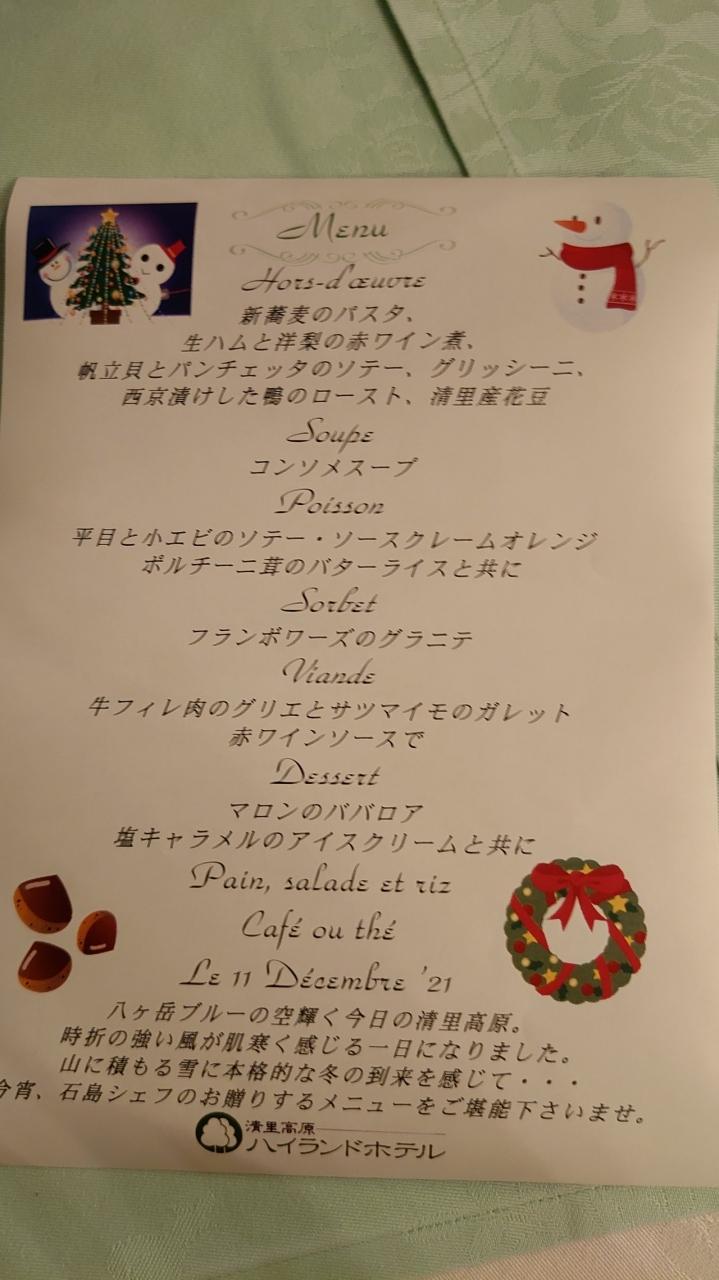 Menu
Hors-d'œuvre
新蕎麦のパスタ、
生ハムと洋梨の赤ワイン煮、
帆立貝とパンチェッタのソテー、グリッシーニ、
西京漬けした鴨のロースト、清里産花豆
Soupe
コンソメスープ
Poisson
平目と小エビのソテー・ソースクレームオレンジ
ポルチーニ茸のバターライスと共に
Sorbet
フランボワーズのグラニテ
Viande
牛フィレ肉のグリエとサツマイモのガレット
赤ワインソースで
Dessert
マロンのババロア
塩キャラメルのアイスクリームと共に
Pain, salade et riz
Café ou thé
Le 11 Décembre '21
八ヶ岳ブルーの空輝く今日の清里高原。
時折の強い風が肌寒く感じる一日になりました。
山に積もる雪に本格的な冬の到来を感じて・・・
今宵、石島シェフのお贈りするメニューをご堪能下さいませ。
清里高原
ハイランドホテル